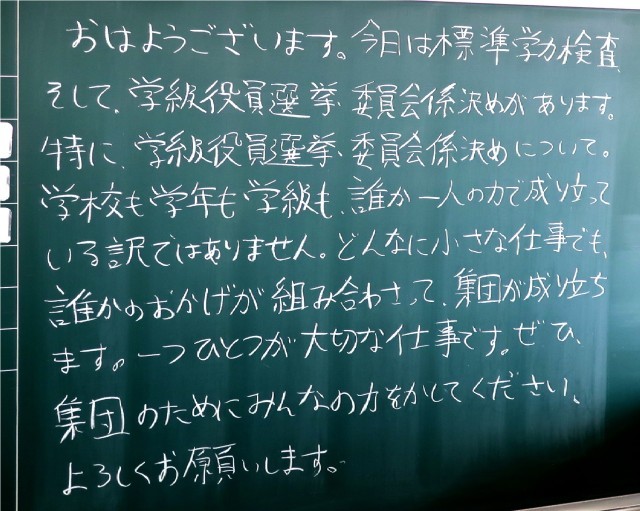 おはようございます。今日は標準学力検査、
そして、学級役員選挙・委員会係決めがあります。
特に、学級役員選挙・委員会係決めについて。
学校も学年も学級も、誰か一人の力で成り立って
いる訳ではありません。どんなに小さな仕事でも、
誰かのおかげが組み合わさって、集団が成り立ち
ます。一つひとつが大切な仕事です。ぜひ、
集団のためにみんなの力をかしてください、
よろしくお願いします。